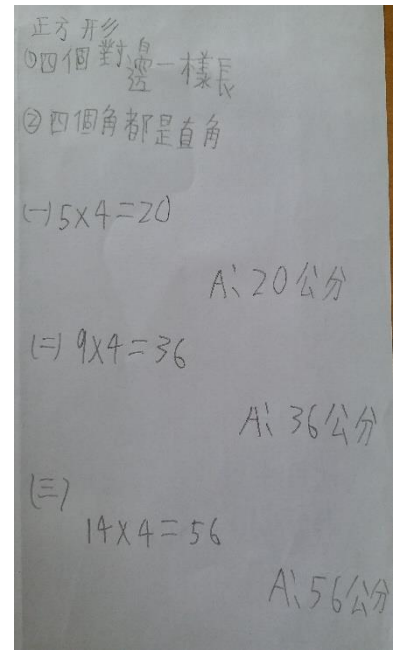 正方形
①四個對邊一樣長
②四個角都是直角
(一) 5×4=20
A: 20公分
(二) 9×4=36
A: 36公分
(三)
14×4=56
A: 56公分